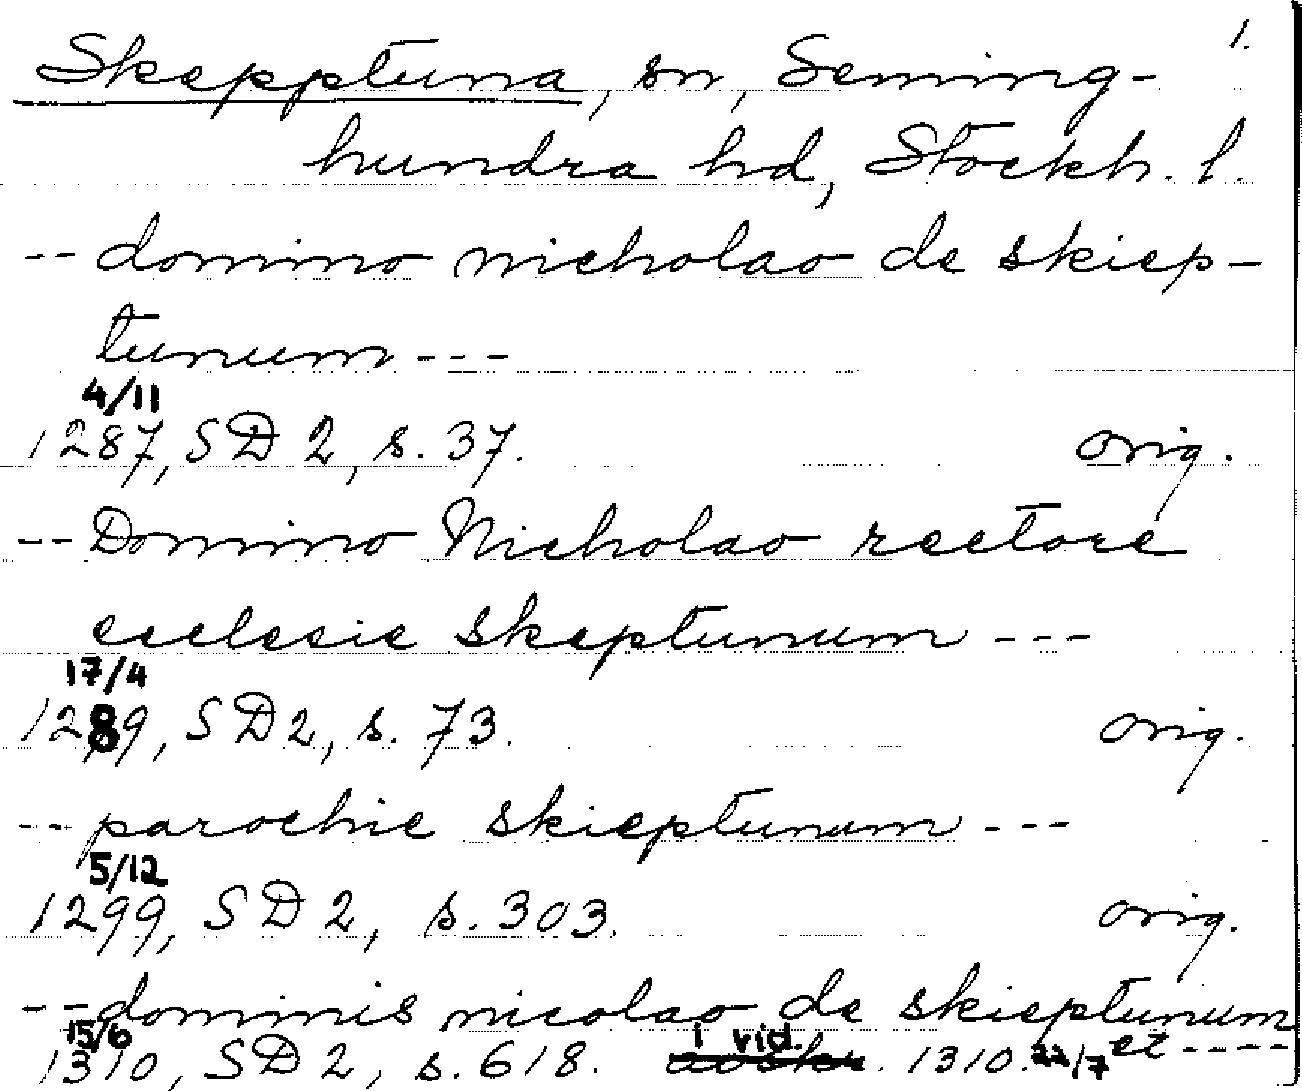 1.
Skepptuna, sn, Seming-
hundra hd, Stockh. l.
-- domino nicholao de skiep-
tunum ---
4/11
1287, SD 2, s. 37. orig.
-- Domino Nicholao rectore
ecclesie skeptunum ---
17/4
1289, SD 2, s. 73. orig.
-- parochie skieptunum ---
5/12
1299, SD 2, s. 303. orig.
-- dominis nicolao de skieptunum
15/6 i vid. et ----
1310, SD 2, s. 618. 1310. 22/7